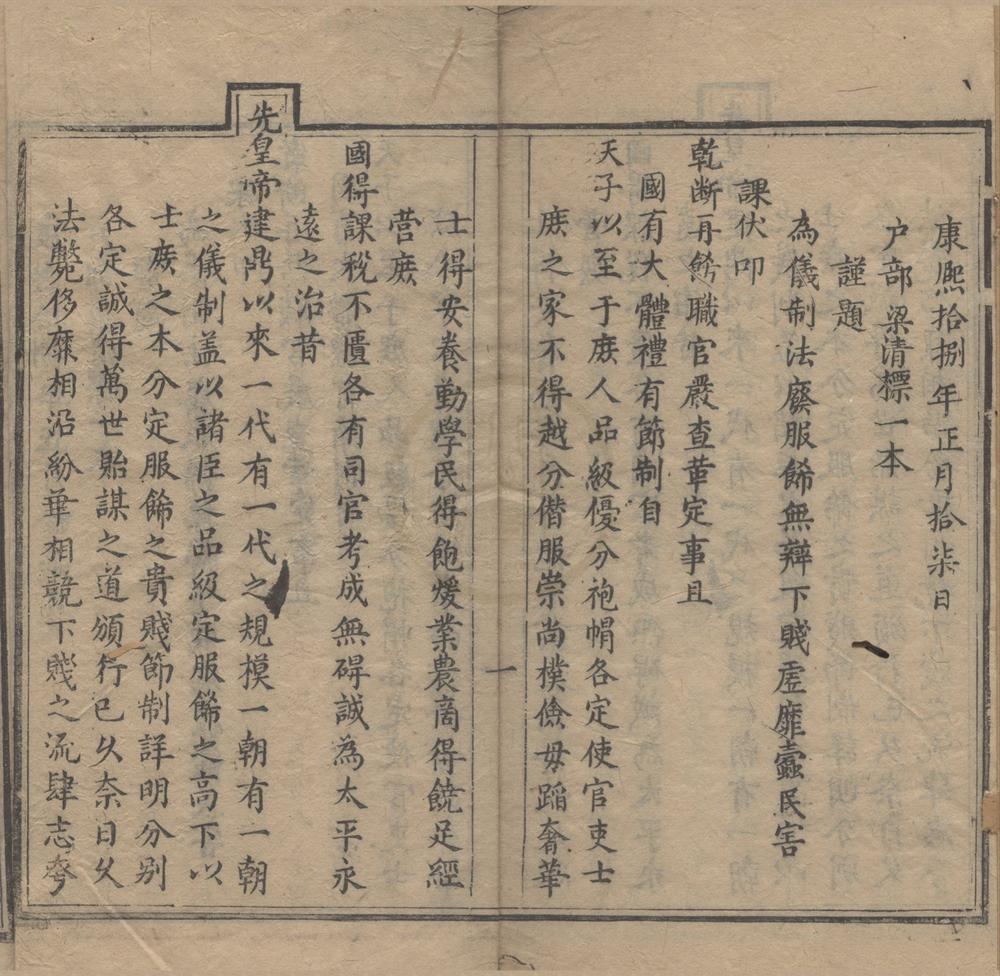 康熙拾捌年正月拾柒日
户部梁清標一本
謹題
為儀制法廢服餙無辯下賤虛靡蠹民害
課伏叩
乾斷再餙職官嚴查革定事且
國有大體禮有節制自
天子以至于庶人品級優分袍帽各定使官吏士
庶之家不得越分僭服崇尚樸儉毋蹈奢華
一
士得安養勤學民得飽煖業農商得饒足經
营庶
國得課税不匱各有司官考成無碍誠為太平永
遠之治昔
先皇帝建鼎以來一代有一代之規模一朝有一朝
之儀制盖以諸臣之品級定服餙之高下以
士庶之本分定服餙之貴賤節制詳明分别
各定誠得萬世貽謀之道頒行已乆奈日乆
法斃侈靡相沿紛華相競下賤之流肆志夸